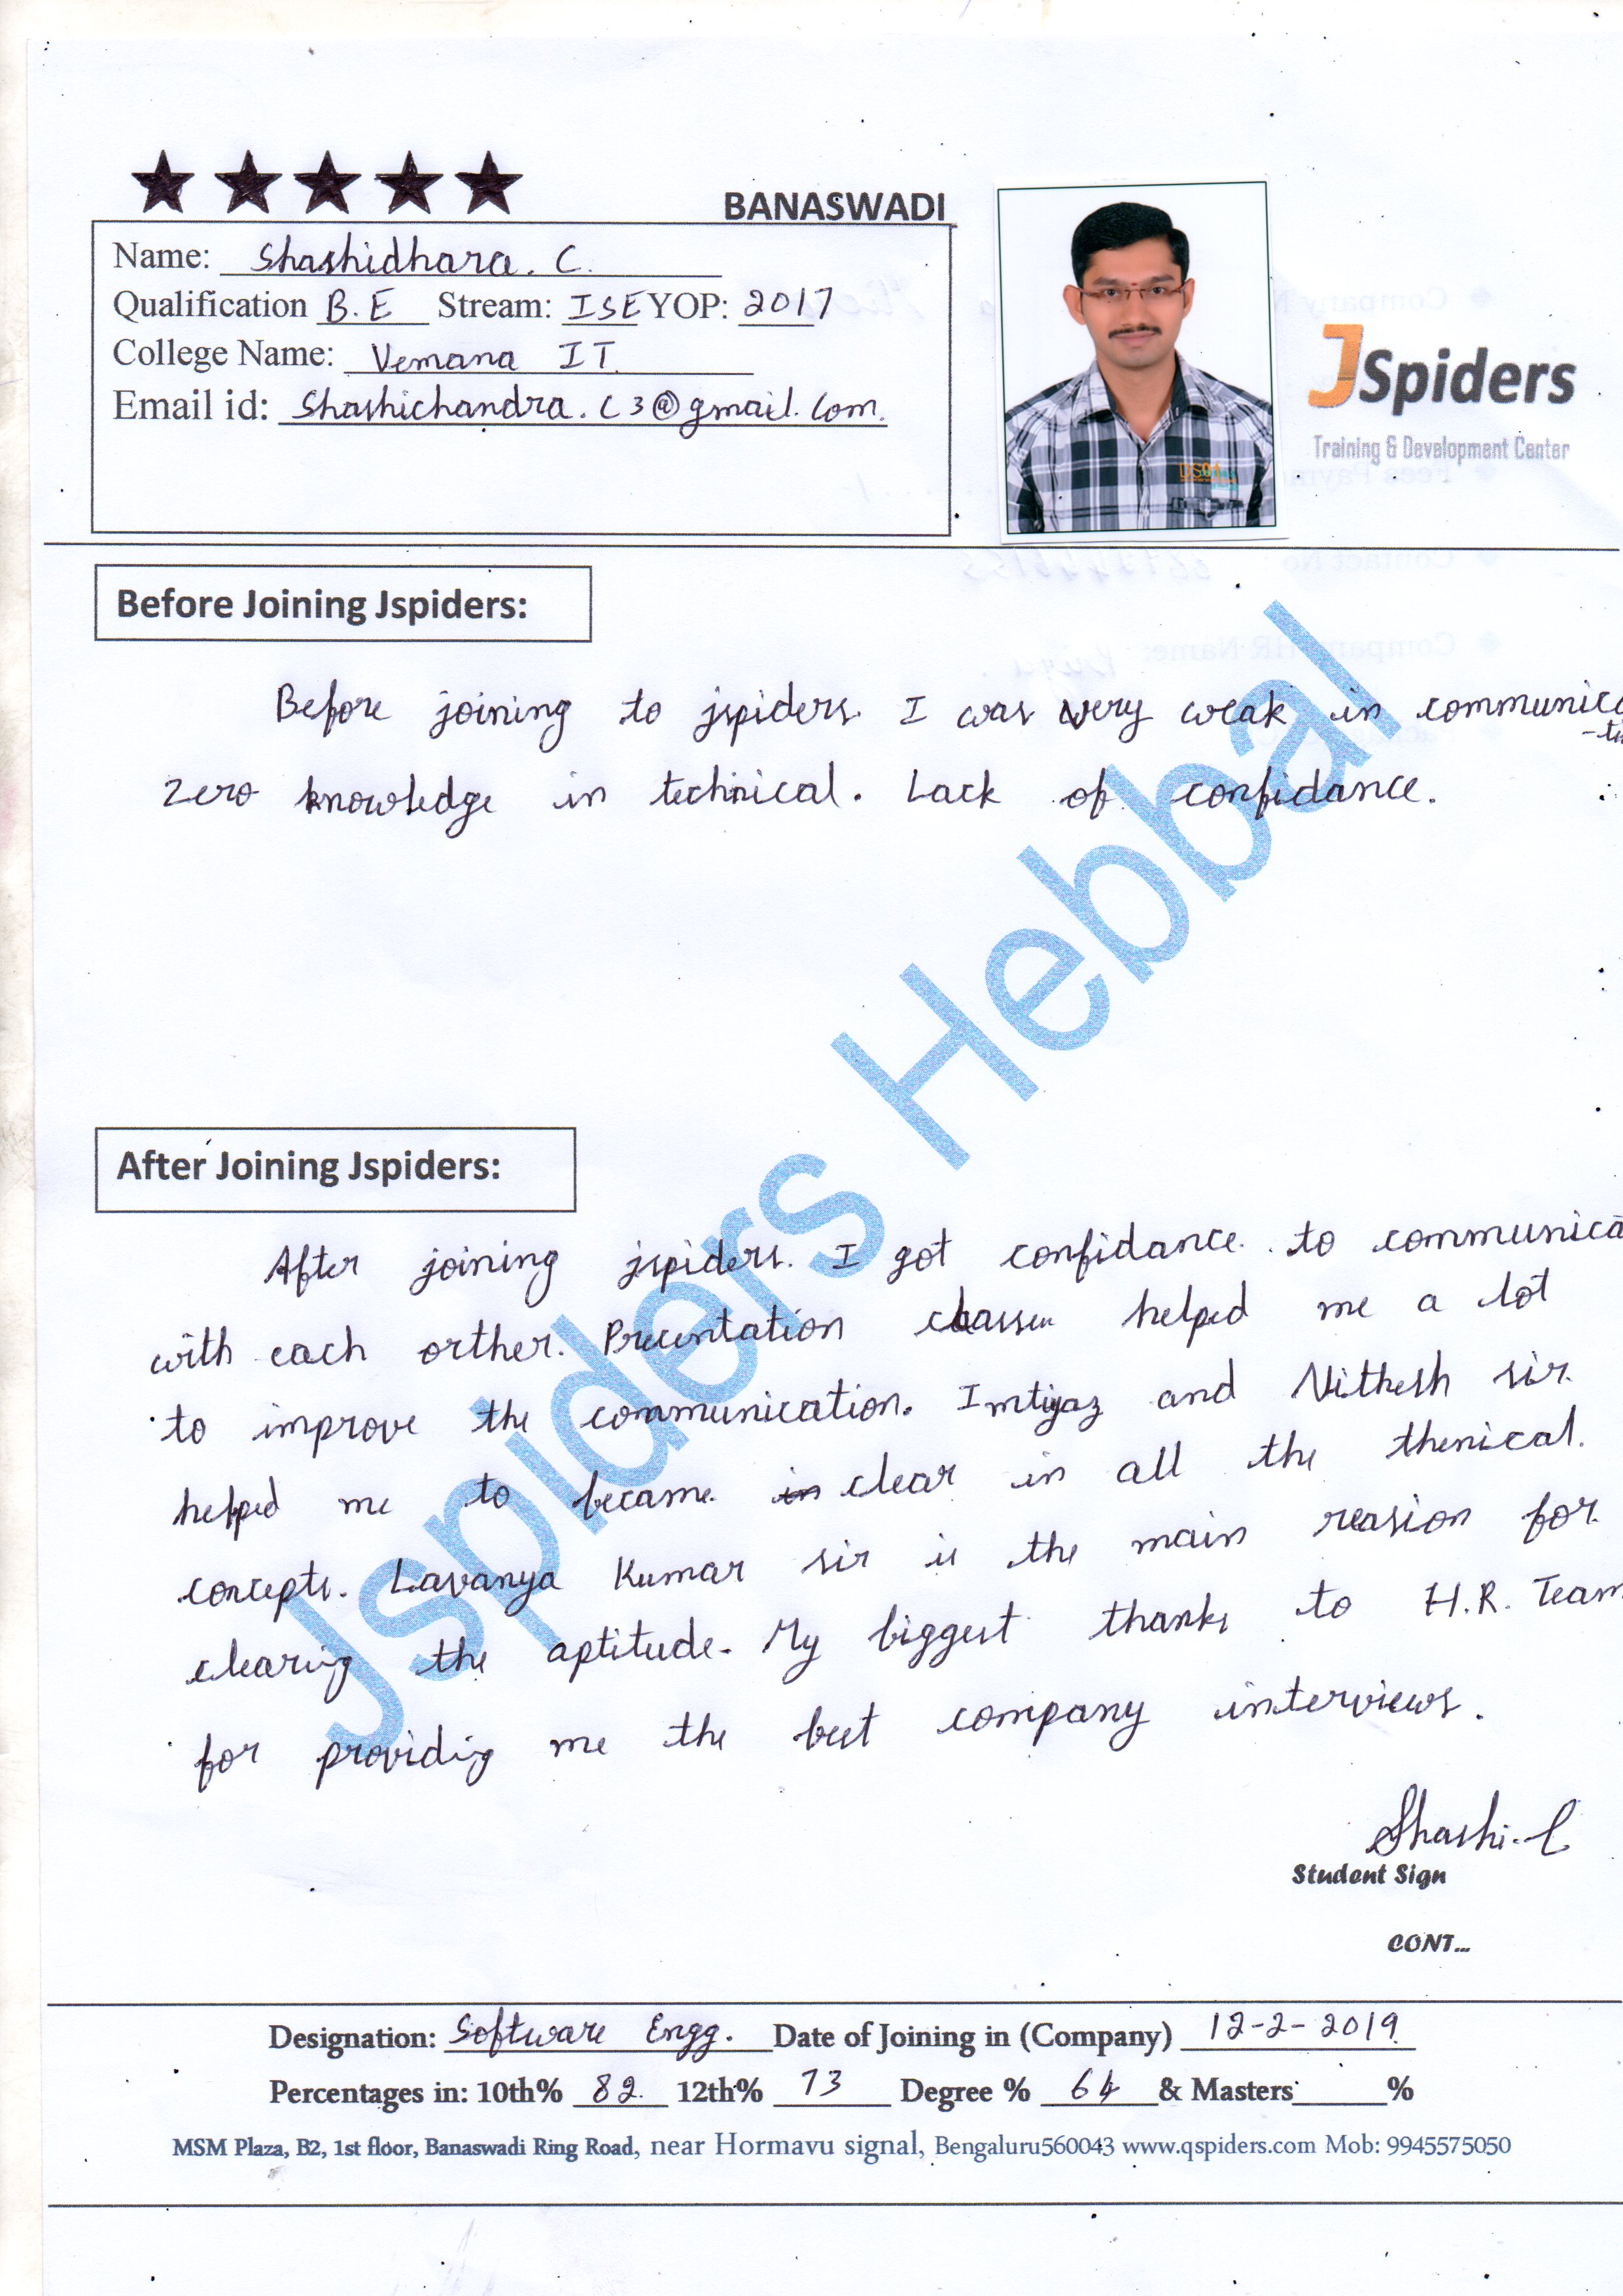 BANASWADI
Name: Shashidhara. C.
Qualification B.E Stream: ISE YOP: 2017
College Name: Vemana IT.
Email id: Shashichandra.c3@gmail.com.
JSpiders
Training & Development Center
Before Joining Jspiders:
Before joining to jspiders. I was very weak in communica
-ti
Zero knowledge in technical. Lack of confidance.
After Joining Jspiders:
After joining jspiders. I got confidance. to communica
with each orther. Presentation classes helped me a lot
to improve the communication. Imtiyaz and Nithesh sir.
helped me to became in clear in all the thenical.
concepts. Lavanya Kumar sir is the main reasion for
clearing the aptitude. My biggest thanks to H.R. Team
for providing me the best company interviews.
Shashi.C
Student Sign
CONT...
Designation: Software Engg. Date of Joining in (Company) 12-2-2019
Percentages in: 10th% 82. 12th% 73 Degree % 64 & Masters %
MSM Plaza, B2, 1st floor, Banaswadi Ring Road, near Hormavu signal, Bengaluru560043 www.qspiders.com Mob: 9945575050
Jspiders Hebbal